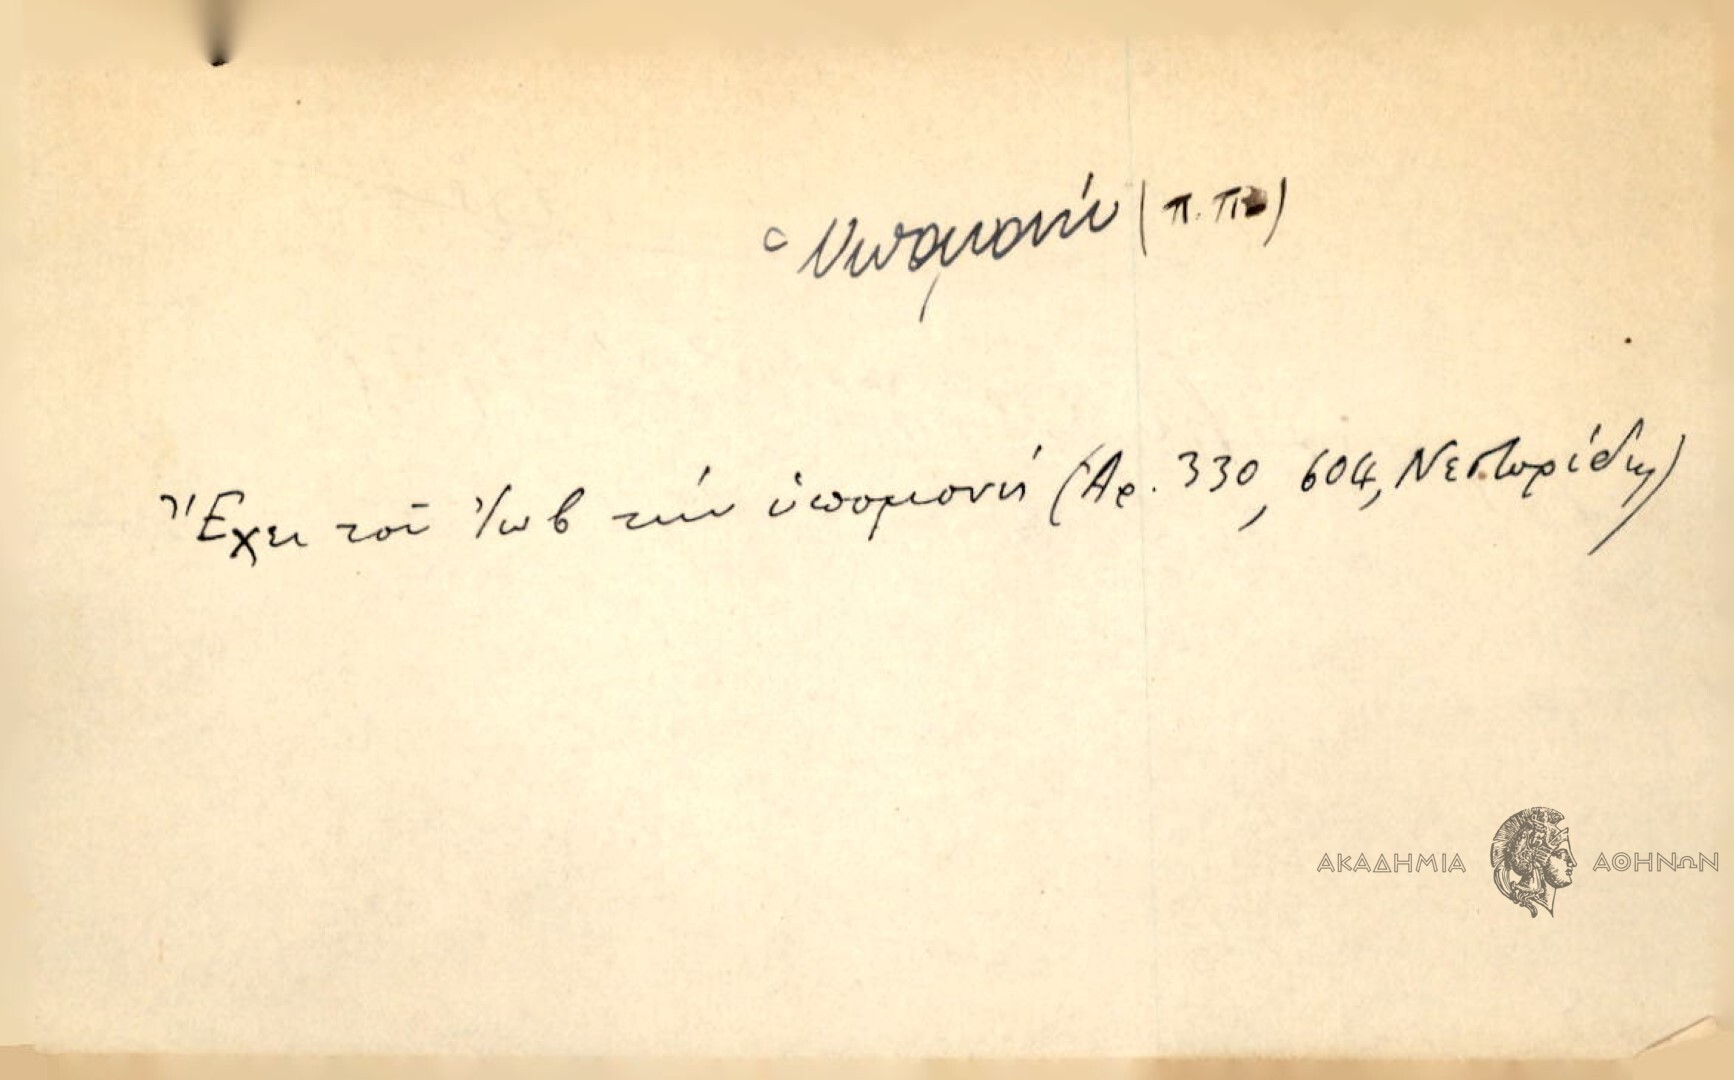 Ὑπομονή (π.π.)
Ἔχει τοῦ Ἰώβ τήν ὑπομονή (Ἀρ. 330, 604, Νεστορίδη)
ΑΚΑΔΗΜΙΑ ΑΘΗΝΩΝ